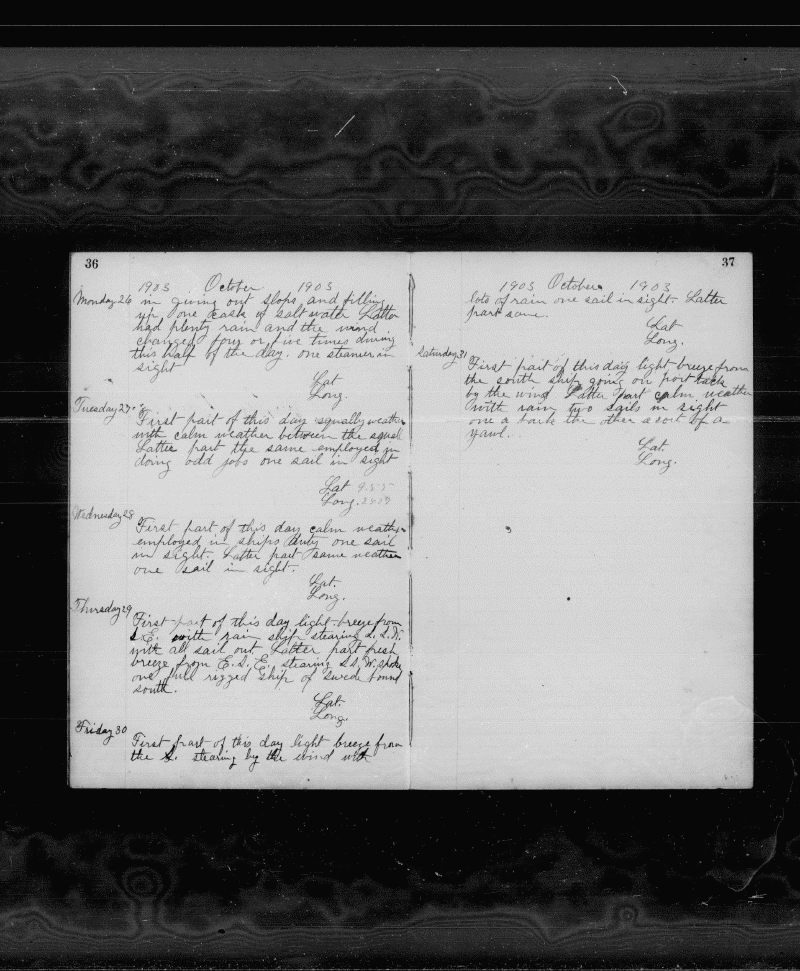 36
1903 October 1903
Monday 26 in giving out slops and filling
up one cask of salt water Latter
had plenty rain and the wind
changed four or five times during
this half of the day. one steamer in
sight
Lat
Long.
Tuesday 27
First part of this day squally weather
with calm weather between the squal
Latter part the same employed in
doing odd jobs one sail in sight
Lat 9.55
Long.
Wednesday 28
First part of this day calm weather
employed in ships duty one sail
in sight. Latter part same weather
one sail in sight.
Lat.
Long.
Thursday 29
First part of this day light breeze from
S.E. with rain ship stearing S.S.W.
with all sail out Latter part fresh
breeze from E.S.E. stearing S.S.W. spoke
one full rigged ship of Swede bound
south.
Lat.
Long.
Friday 30
First part of this day light breeze from
the S. stearing by the wind with
37
1903 October 1903
lots of rain one sail in sight. Latter
part same.
Lat
Long.
Saturday 31
First part of this day light breeze from
the south ship going on port tack
by the wind Latter part calm weather
with rain two sails in sight
one a bark the other a sort of a
yawl.
Lat.
Long.